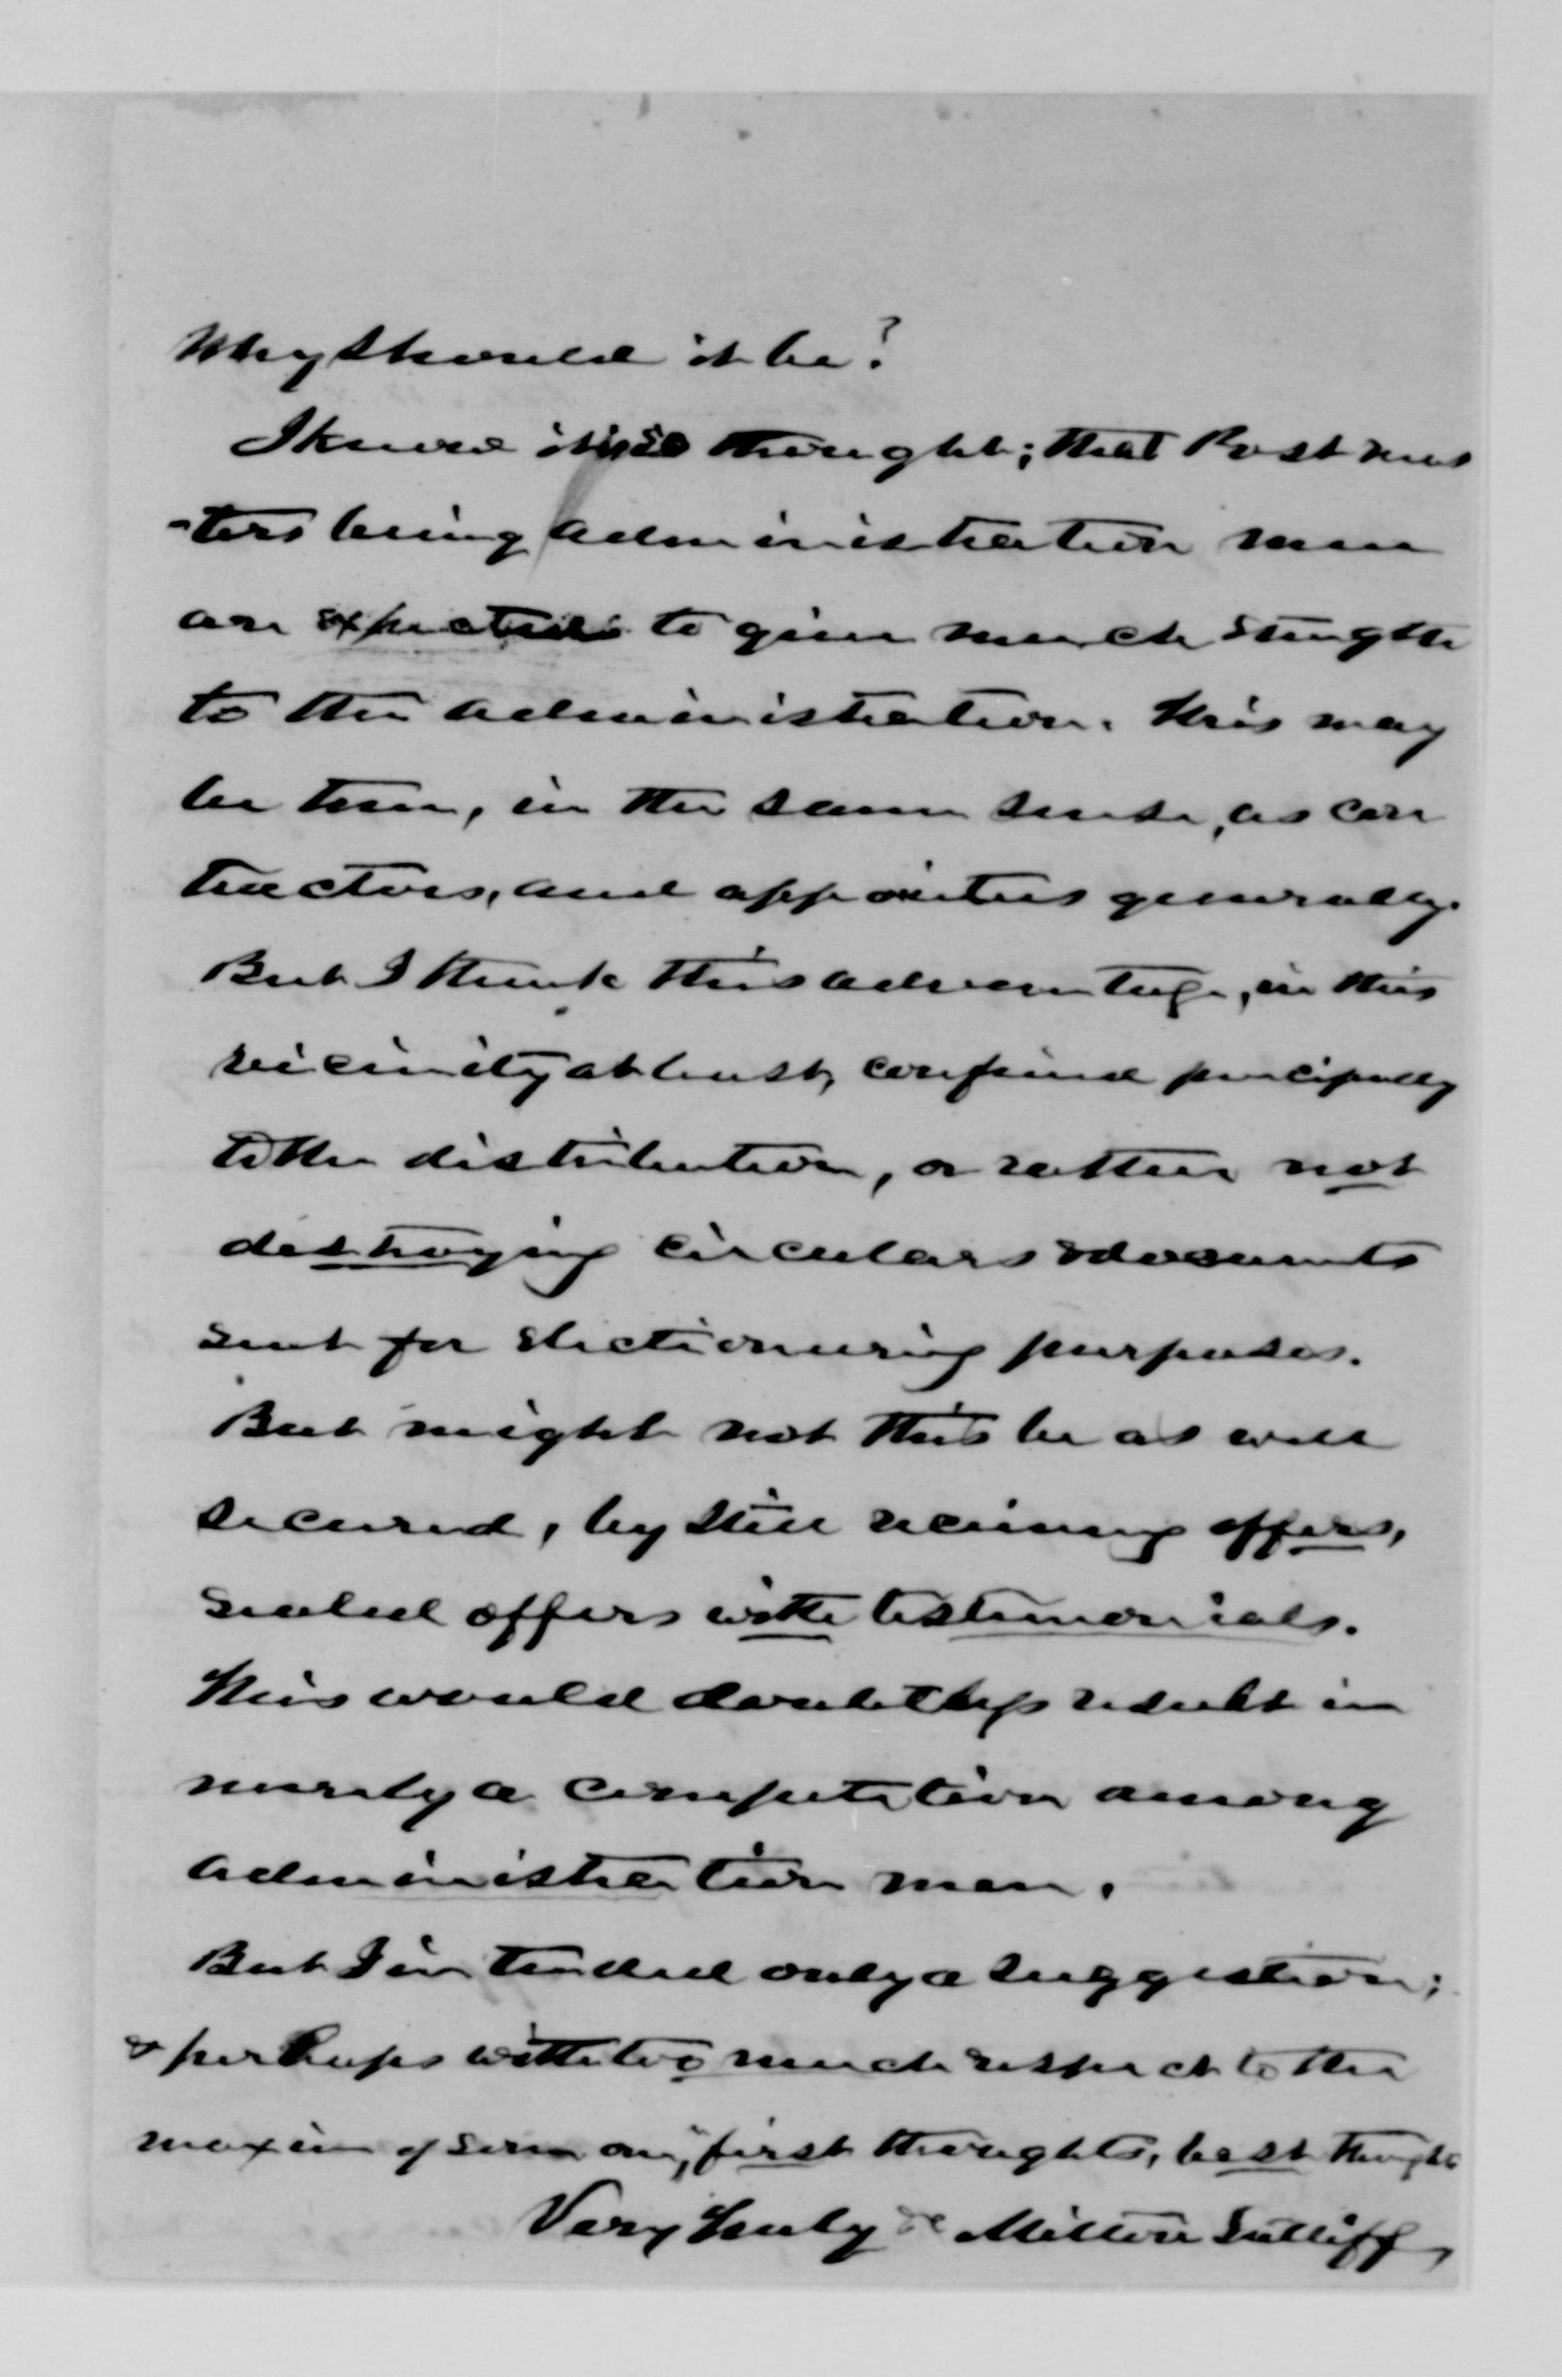 Why should it be?
I know it is so thought; that Post mas
-ters being administration men
are expected to give much strength
to the administration. This may
be true, in the same sense, as con
tractors, and appointees generally.
But I think this advantage, in this
vicinity at least, confined principally
to the distribution, or rather not
destroying circulars & documents
sent for electioneering purposes.
But might not this be as well
secured, by still receiving offers,
sealed offers with testimonials.
This would doubtless result in
merely a competition among
administration men.
But I intended only a suggestion;
& perhaps with too much respect to the
maxim of some one, "first thoughts, best thoughts
Very truly &c Milton Sutliff